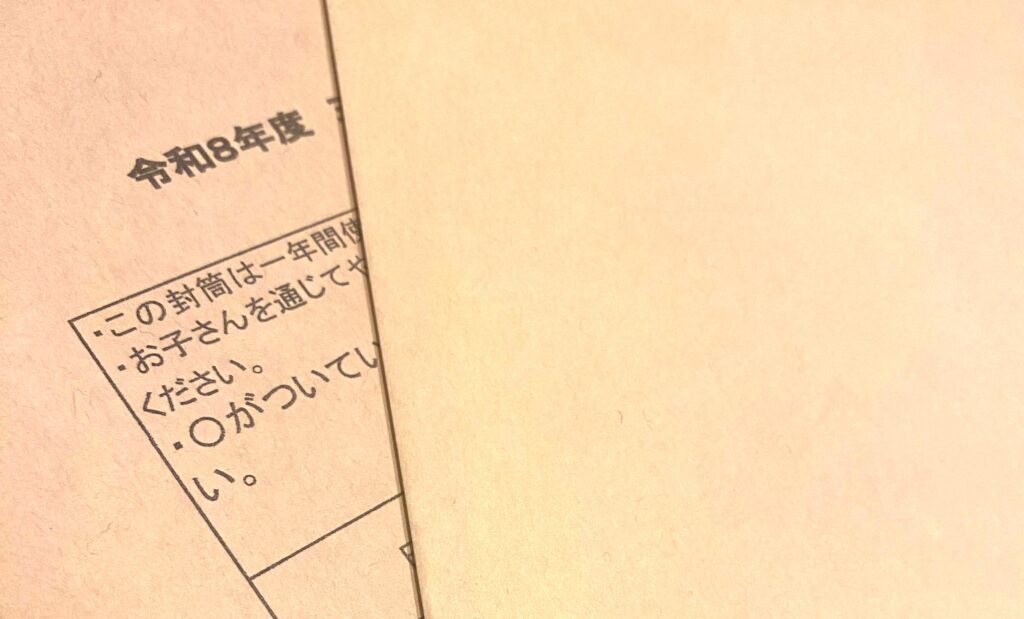 令和8年度
・この封筒は一年間使
・お子さんを通じてや
ください。
・〇がついてい
い。